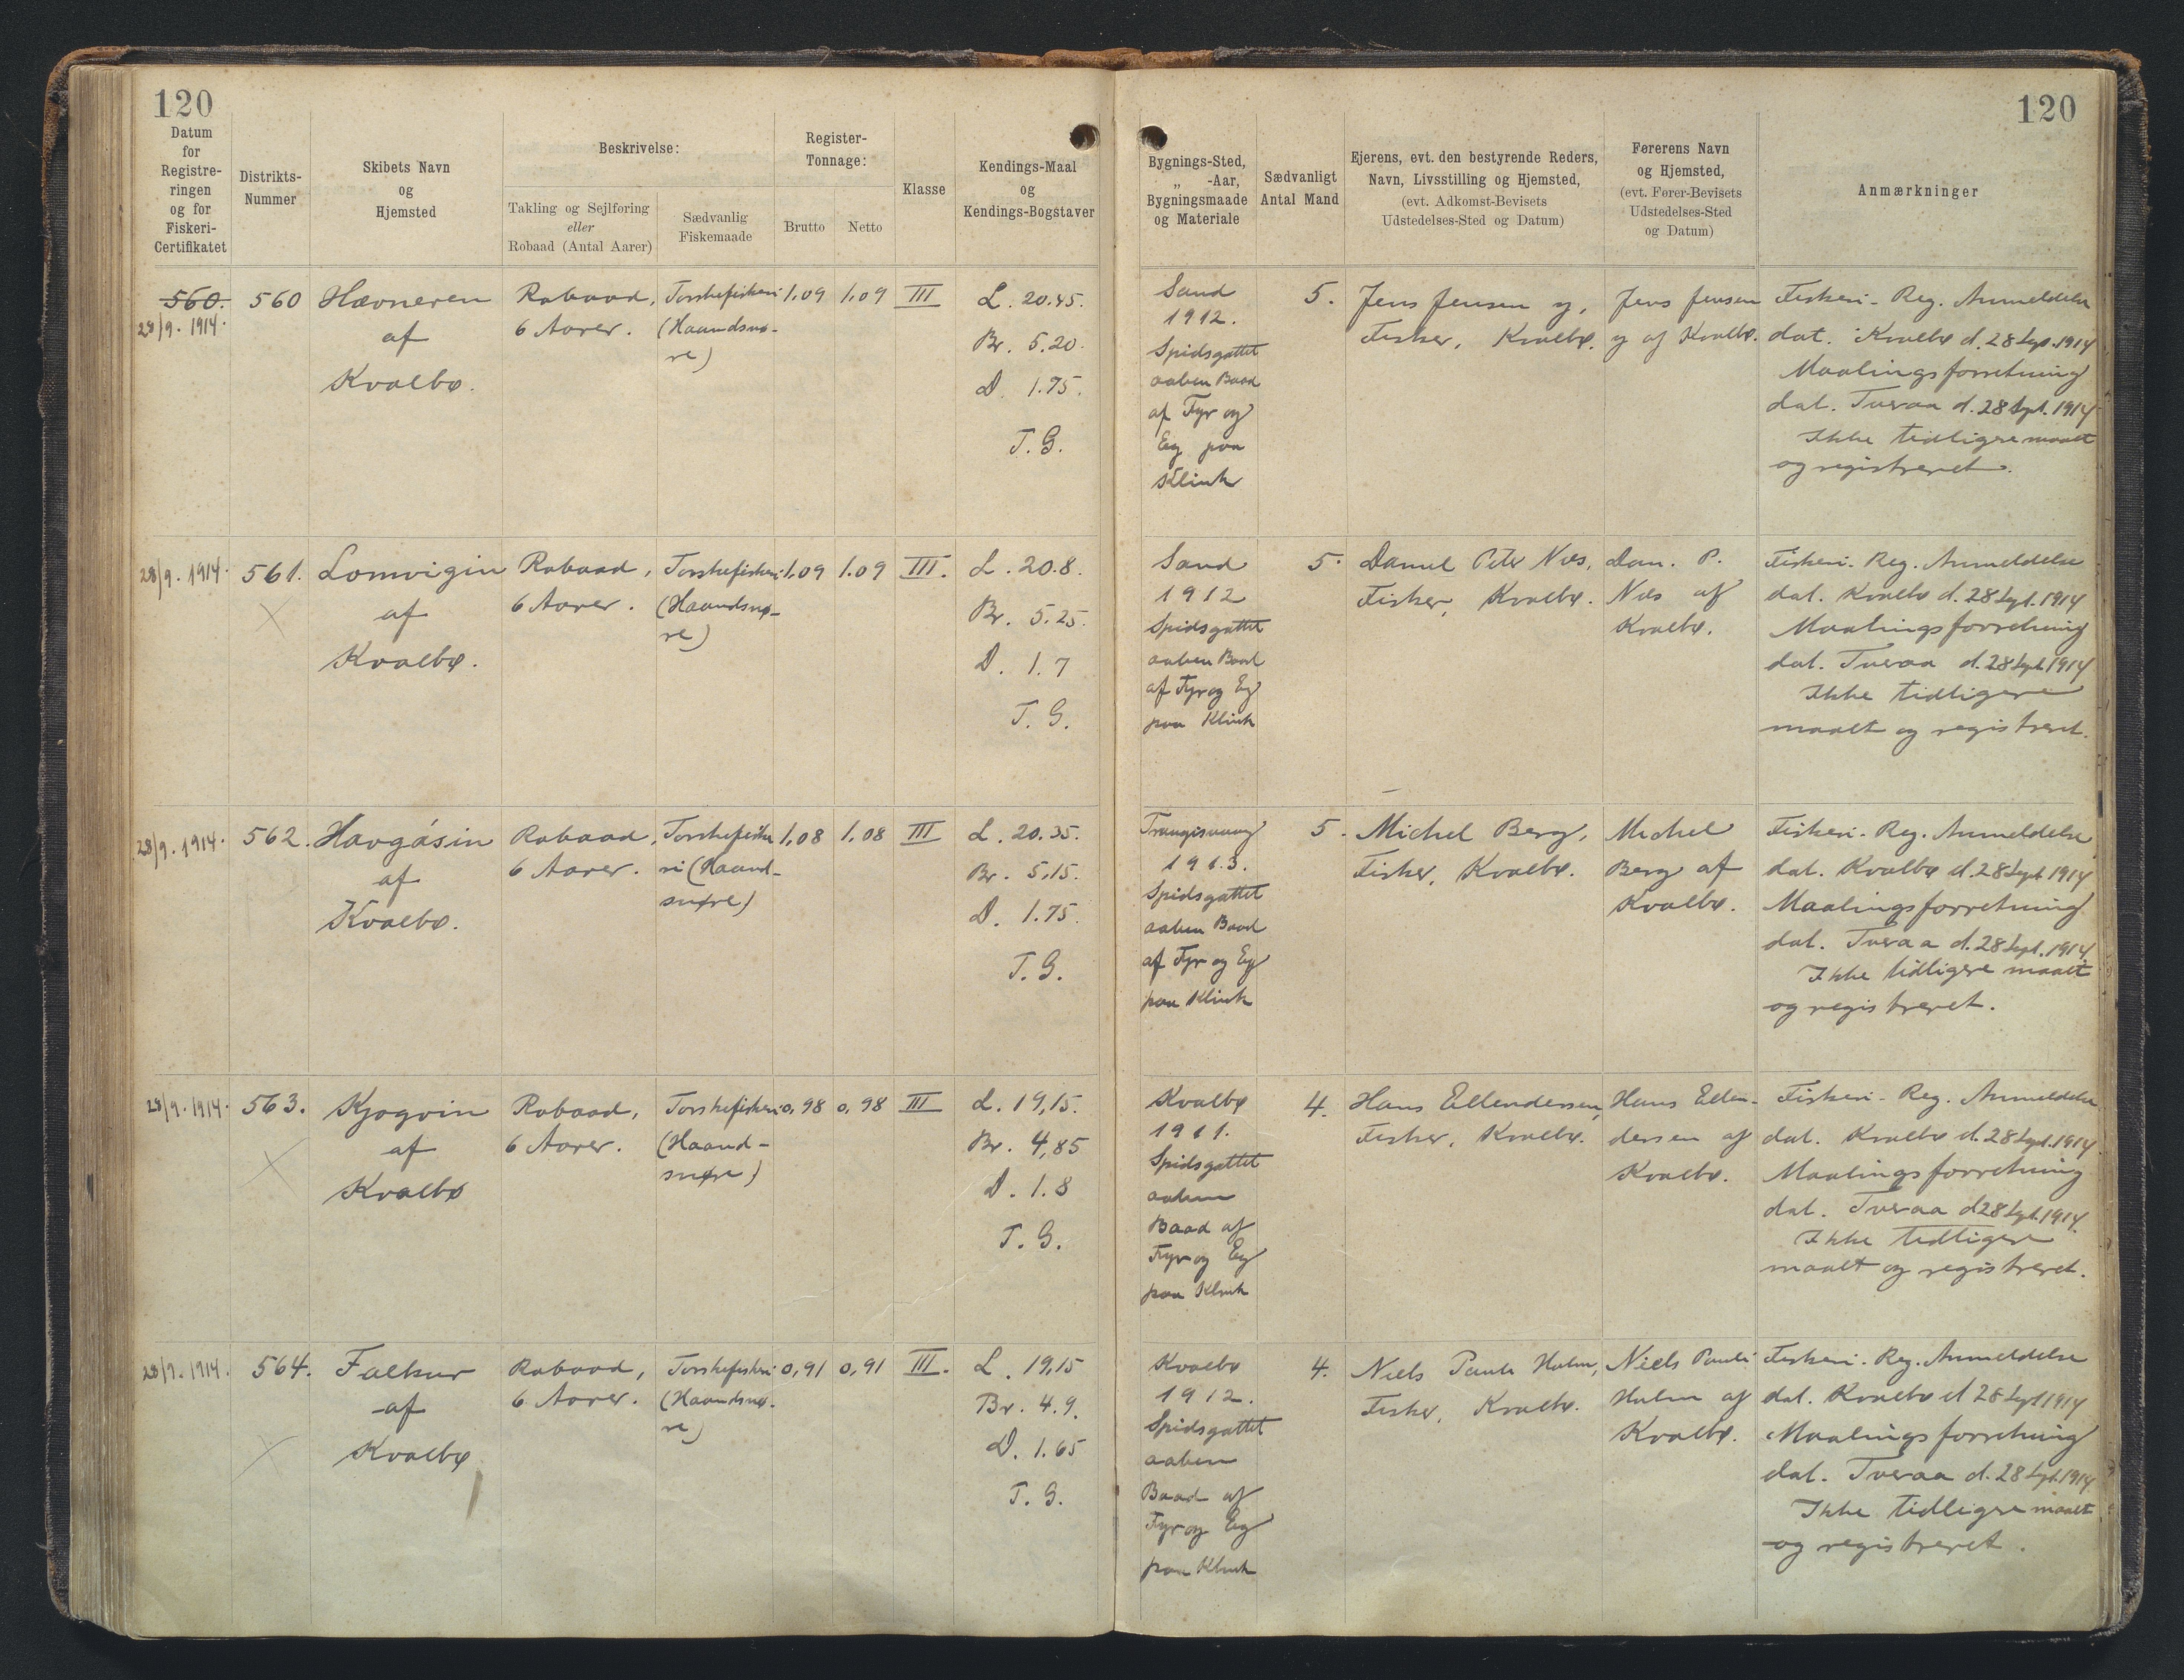 120
120
Datum
for
Registre-
ringen
og for
Fiskeri-
Certifikatet
Distrikts-
Nummer
Skibets Navn
og
Hjemsted
Beskrivelse:
Takling og Sejlføring
eller
Robaad (Antal Aarer)
Sædvanlig
Fiskemaade
Register-
Tonnage:
Brutto
Netto
Klasse
Kendings-Maal
og
Kendings-Bogstaver
Bygnings-Sted,
„ -Aar,
Bygningsmaade
og Materiale
Sædvanligt
Antal Mand
Ejerens, evt. den bestyrende Reders,
Navn, Livsstilling og Hjemsted,
(evt. Adkomst-Bevisets
Udstedelses-Sted og Datum)
Førerens Navn
og Hjemsted,
(evt. Fører-Bevisets
Udstedelses-Sted
og Datum)
Anmærkninger
560.
28/9. 1914.
560
Hævneren
af
Kvalbø.
Robaad,
6 Aarer.
Torskefiskeri
(Haandsnø-
re)
1,09
1,09
III
L. 20.45.
Br. 5.20.
D. 1.75.
T. G.
Sand
1912.
Spidsgattet
aaben Baad
af Fyr og
Eg paa
Klink
5.
Jens Jensen y,
Fisker, Kvalbø.
Jens Jensen
y af Kvalbø.
Fiskeri-Reg. Anmeldelse
dat. Kvalbø d. 28 Sept. 1914
Maalingsforretning
dat. Tveraa d. 28 Sept. 1914
Ikke tidligere maalt
og registreret.
28/9. 1914.
561.
Lomvigin
af
Kvalbø.
Robaad,
6 Aarer.
Torskefiskeri
(Haandsnø-
re)
1,09
1.09
III.
L. 20.8.
Br. 5.25.
D. 1.7
T. G.
Sand
1912
Spidsgattet
aaben Baad
af Fyr og Eg
paa Klink
5.
Daniel Peter Næs,
Fisker, Kvalbø.
Dan. P.
Næs af
Kvalbø.
Fiskeri-Reg. Anmeldelse
dat. Kvalbø d. 28 Sept. 1914
Maalingsforretning
dat. Tveraa d. 28 Sept. 1914
Ikke tidligere
maalt og registreret.
28/9. 1914.
562.
Havgásin
af
Kvalbø.
Robaad,
6 Aarer.
Torskefiske
ri (Haand-
snøre)
1,08
1,08
III
L. 20.35.
Br. 5,15.
D. 1.75.
T. G.
Trangisvaag
1913.
Spidsgattet
aaben Baad
af Fyr og Eg
paa Klink
5.
Michel Berg,
Fisker, Kvalbø.
Michel
Berg af
Kvalbø.
Fiskeri-Reg. Anmeldelse
dat. Kvalbø d. 28 Sept. 1914
Maalingsforretning
dat. Tveraa d. 28 Sept. 1914
Ikke tidligere maalt
og registreret.
28/9. 1914.
563.
Kjogvin
af
Kvalbø
Robaad,
6 Aarer.
Torskefiskeri
(Haand-
snøre)
0,98
0,98
III
L. 19,15.
Br. 4,85
D. 1.8
T. G.
Kvalbø
1911.
Spidsgattet
aaben
Baad af
Fyr og Eg
paa Klink
4.
Hans Ellendersen,
Fisker, Kvalbø.
Hans Ellen-
dersen af
Kvalbø.
Fiskeri-Reg. Anmeldelse
dat. Kvalbø d. 28 Sept. 1914
Maalingsforretning
dat. Tveraa d 28 Sept. 1914.
Ikke tidligere
maalt og registreret.
28/9. 1914.
564.
Falkur
af
Kvalbø
Robaad,
6 Aarer.
Torskefiskeri
(Haandsnø-
re)
0,91
0,91
III.
L. 19,15
Br. 4.9.
D. 1.65
T. G.
Kvalbø
1912.
Spidsgattet
aaben
Baad af
Fyr og Eg
paa Klink
4.
Niels Pauli Holm,
Fisker, Kvalbø.
Niels Pauli
Holm af
Kvalbø.
Fiskeri-Reg. Anmeldelse
dat. Kvalbø d 28 Sept 1914
Maalingsforretning
dat. Tveraa d. 28 Sept. 1914.
Ikke tidligere maalt
og registreret.